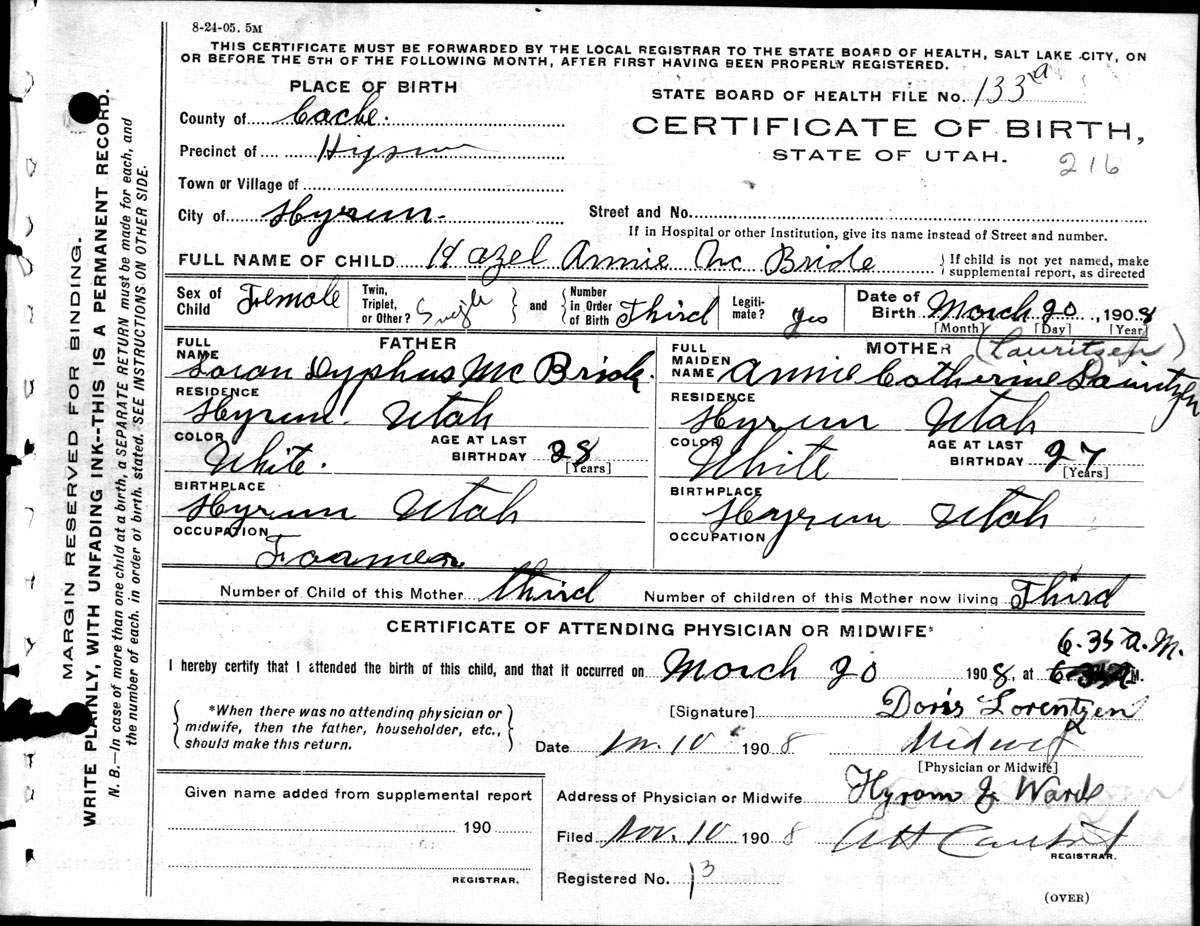 8-24-05. 5M
THIS CERTIFICATE MUST BE FORWARDED BY THE LOCAL REGISTRAR TO THE STATE BOARD OF HEALTH, SALT LAKE CITY, ON
OR BEFORE THE 5TH OF THE FOLLOWING MONTH, AFTER FIRST HAVING BEEN PROPERLY REGISTERED.
PLACE OF BIRTH
STATE BOARD OF HEALTH FILE No. 133 a
County of Cache.
CERTIFICATE OF BIRTH,
STATE OF UTAH.
216
Precinct of
Town or Village of
City of Hyrum.
Street and No.
If in Hospital or other Institution, give its name instead of Street and number.
FULL NAME OF CHILD Hazel Annie Mc Bride
If child is not yet named, make supplemental report, as directed
Sex of Child Female
Twin, Triplet, or Other? Single
and
Number in Order of Birth Third
Legiti-mate? yes
Date of Birth March 20, 1908
[Month] [Day] [Year]
FATHER
FULL NAME Loran Dyphus Mc Bride.
RESIDENCE Hyrum. Utah
COLOR White.
AGE AT LAST BIRTHDAY 28
[Years]
BIRTHPLACE Hyrum Utah
OCCUPATION Farmer
MOTHER (Lauritsen)
FULL MAIDEN NAME Annie Catherine
RESIDENCE Hyrum Utah
COLOR White
AGE AT LAST BIRTHDAY 27
[Years]
BIRTHPLACE Hyrum Utah
OCCUPATION
Number of Child of this Mother third
Number of children of this Mother now living Third
CERTIFICATE OF ATTENDING PHYSICIAN OR MIDWIFE*
6.35 A.M.
I hereby certify that I attended the birth of this child, and that it occurred on March 20 1908, at M.
*When there was no attending physician or midwife, then the father, householder, etc., should make this return.
[Signature] Doris Lorentzen
Date 10 1908 Midwife
[Physician or Midwife]
Given name added from supplemental report
190
REGISTRAR.
Address of Physician or Midwife Hyrum Ward
Filed Nov. 10 1908
REGISTRAR.
Registered No. 13
(OVER)
MARGIN RESERVED FOR BINDING.
WRITE PLAINLY, WITH UNFADING INK--THIS IS A PERMANENT RECORD.
N. B.—In case of more than one child at a birth, a SEPARATE RETURN must be made for each, and
the number of each, in order of birth, stated. SEE INSTRUCTIONS ON OTHER SIDE.